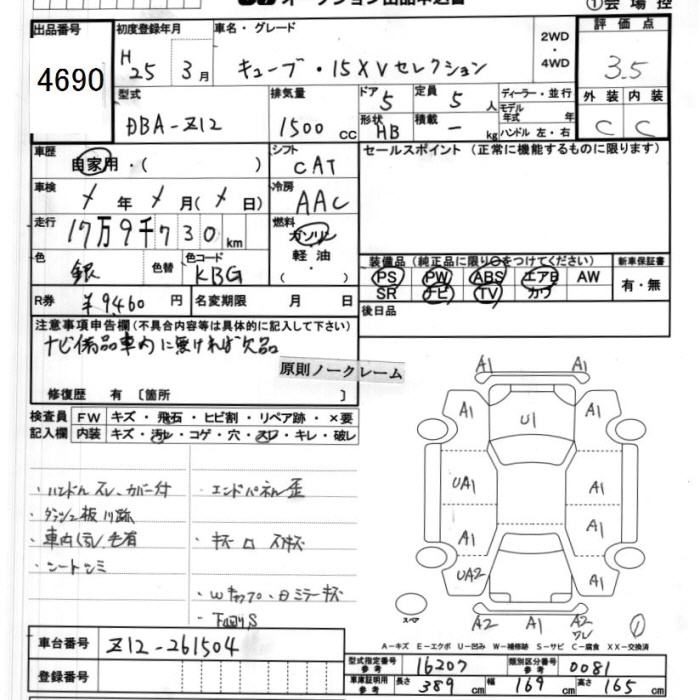 ①会場控
出品番号
4690
初度登録年月
H25 3月
車名・グレード
キューブ・15XVセレクション
2WD・4WD
評価点
3.5
型式
DBA-Z12
排気量
1500cc
ドア
5
定員
5人
形状
HB
積載
-kg
ディーラー・並行
モデル年式 年
ハンドル 左・右
外装 内装
C C
車歴
自家用・( )
シフト
CAT
セールスポイント(正常に機能するものに限ります)
車検
/年 /月(/日)
冷房
AAC
走行
17万9千730km
燃料
ガソリン
軽油
( )
色
銀
色替
色コード
KBG
装備品(純正品に限り○をつけてください)
新車保証書
PS PW ABS エアB AW
有・無
SR ナビ TV カワ
R券
¥9460円
名変期限 月 日
後日品
注意事項申告欄(不具合内容等は具体的に記入して下さい)
ナビ備品車内に無ければ欠品
原則ノークレーム
修復歴 有〔箇所 〕
検査員記入欄
FW キズ・飛石・ヒビ割・リペア跡・×要
内装 キズ・汚レ・コゲ・穴・スレ・キレ・破レ
・ハンドルスレ、カバー付
・エンドパネル歪
・ダッシュ板
・車内
・キズ
・シート
・ミラーキズ
A1 A1
A1 U1 A1
UA1 A1
A1 A1
UA2 A1
スペア
A2 A1 A2
①
A-キズ E-エクボ U-凹み W-補修跡 S-サビ C-腐食 XX-交換済
車台番号
Z12-261504
登録番号
型式指定番号 参考
16207
類別区分番号 参考
0081
車庫証明用 参考
長さ 389cm 幅 169cm 高さ 165cm